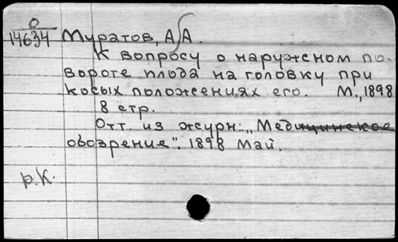 О
14634 Муратов, А. А.
К вопросу о наружном по-
вороте плода на головку при
косых положениях его. М., 1898
8 стр.
Отт. из журн.: „Медицинское
обозрение". 1898 Май.
р.К.